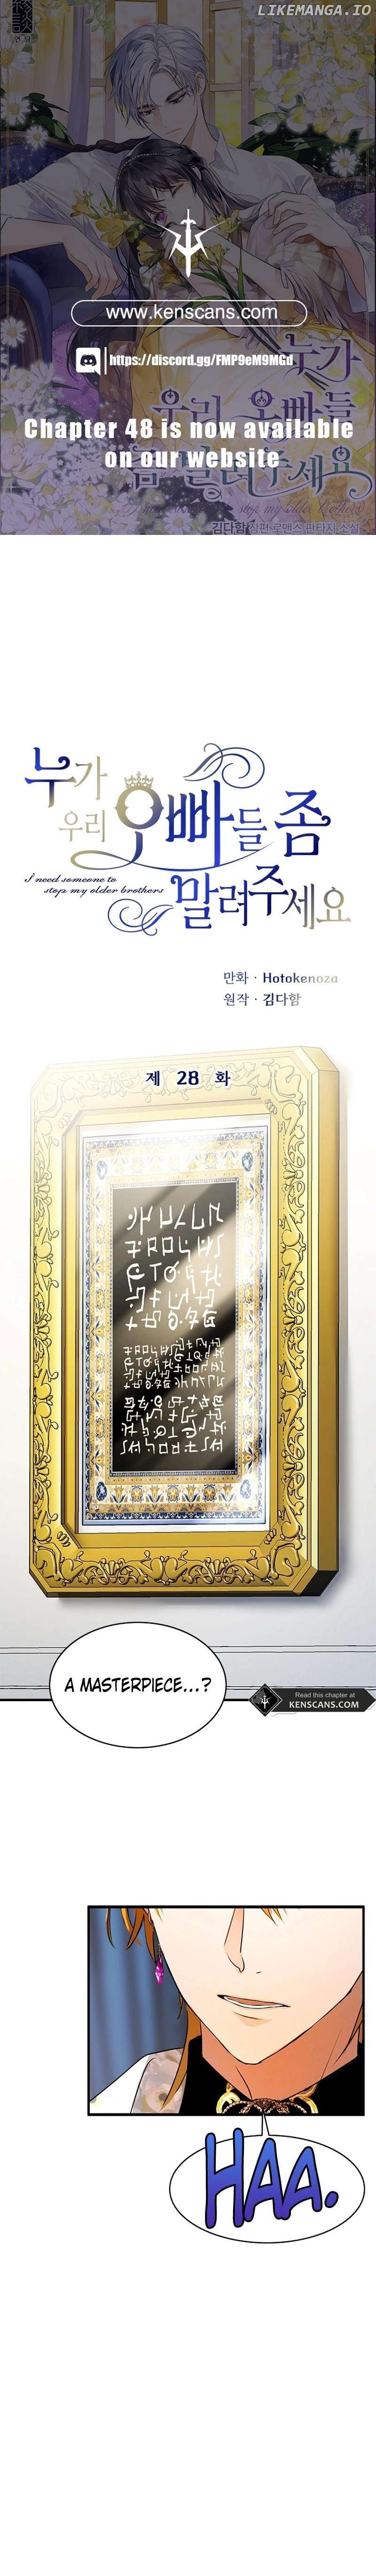 LIKEMANGA.IO
www.kenscans.com
https://discord.gg/FMP9eM9MGd
누가
우리 오빠들
Chapter 48 is now available
on our website
좀 말려주세요
김다함 장편 로맨스 판타지 소설
누가
우리 오빠들 좀
I need someone to
stop my older brothers
말려주세요
만화 · Hotokenoza
원작 · 김다함
제 28 화
A MASTERPIECE...?
Read this chapter at
KENSCANS.COM
HAA.